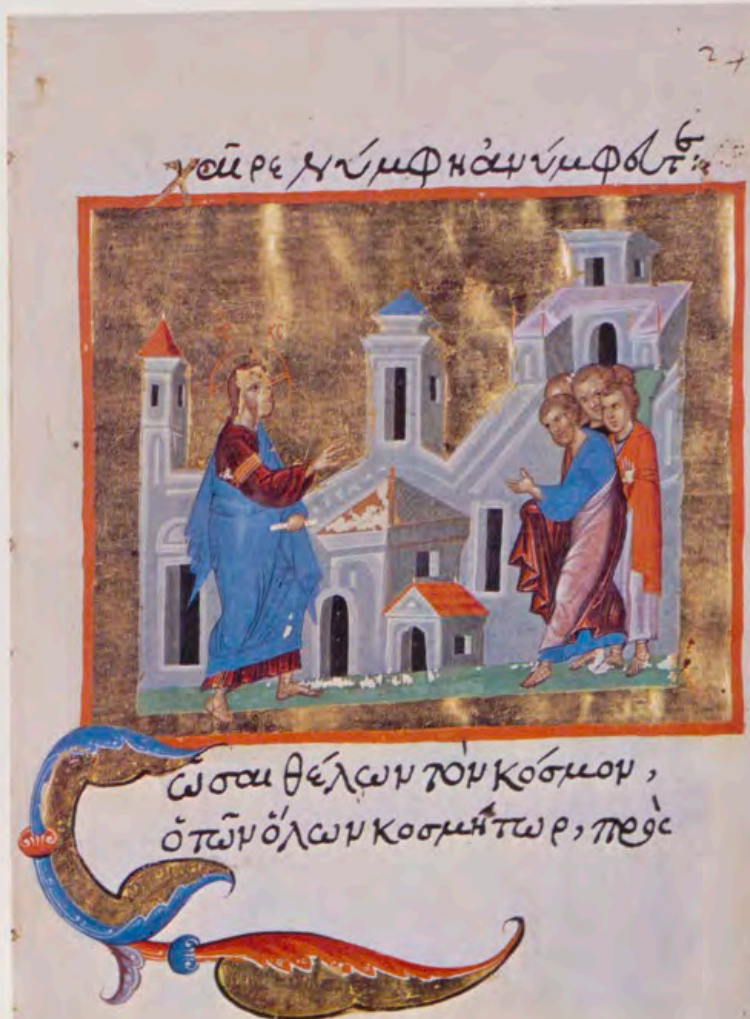 χαῖρε νύμφη ἀνύμφευτε:
Σῶσαι θέλων τὸν κόσμον,
ὁ τῶν ὅλων κοσμήτωρ, πρὸς